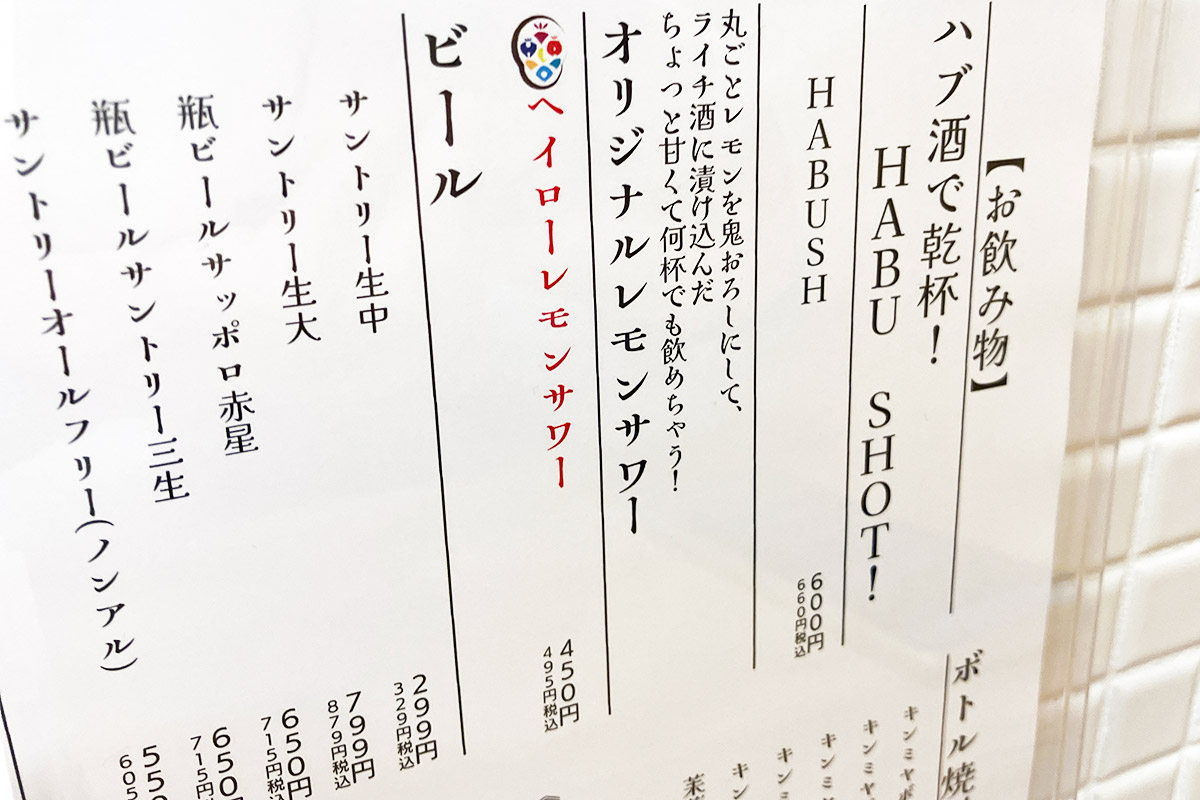 【お飲み物】
ハブ酒で乾杯！
HABU SHOT！
HABUSH
600円
660円税込
丸ごとレモンを鬼おろしにして、
ライチ酒に漬け込んだ
ちょっと甘くて何杯でも飲めちゃう！
オリジナルレモンサワー
ヘイローレモンサワー
450円
495円税込
ビール
サントリー生中
299円
329円税込
サントリー生大
799円
879円税込
瓶ビールサッポロ赤星
650円
715円税込
瓶ビールサントリー三生
650円
715円税込
サントリーオールフリー(ノンアル)
550
605
ボトル焼
キンミヤボ
キンミヤ
キンミ
キンミ
キン